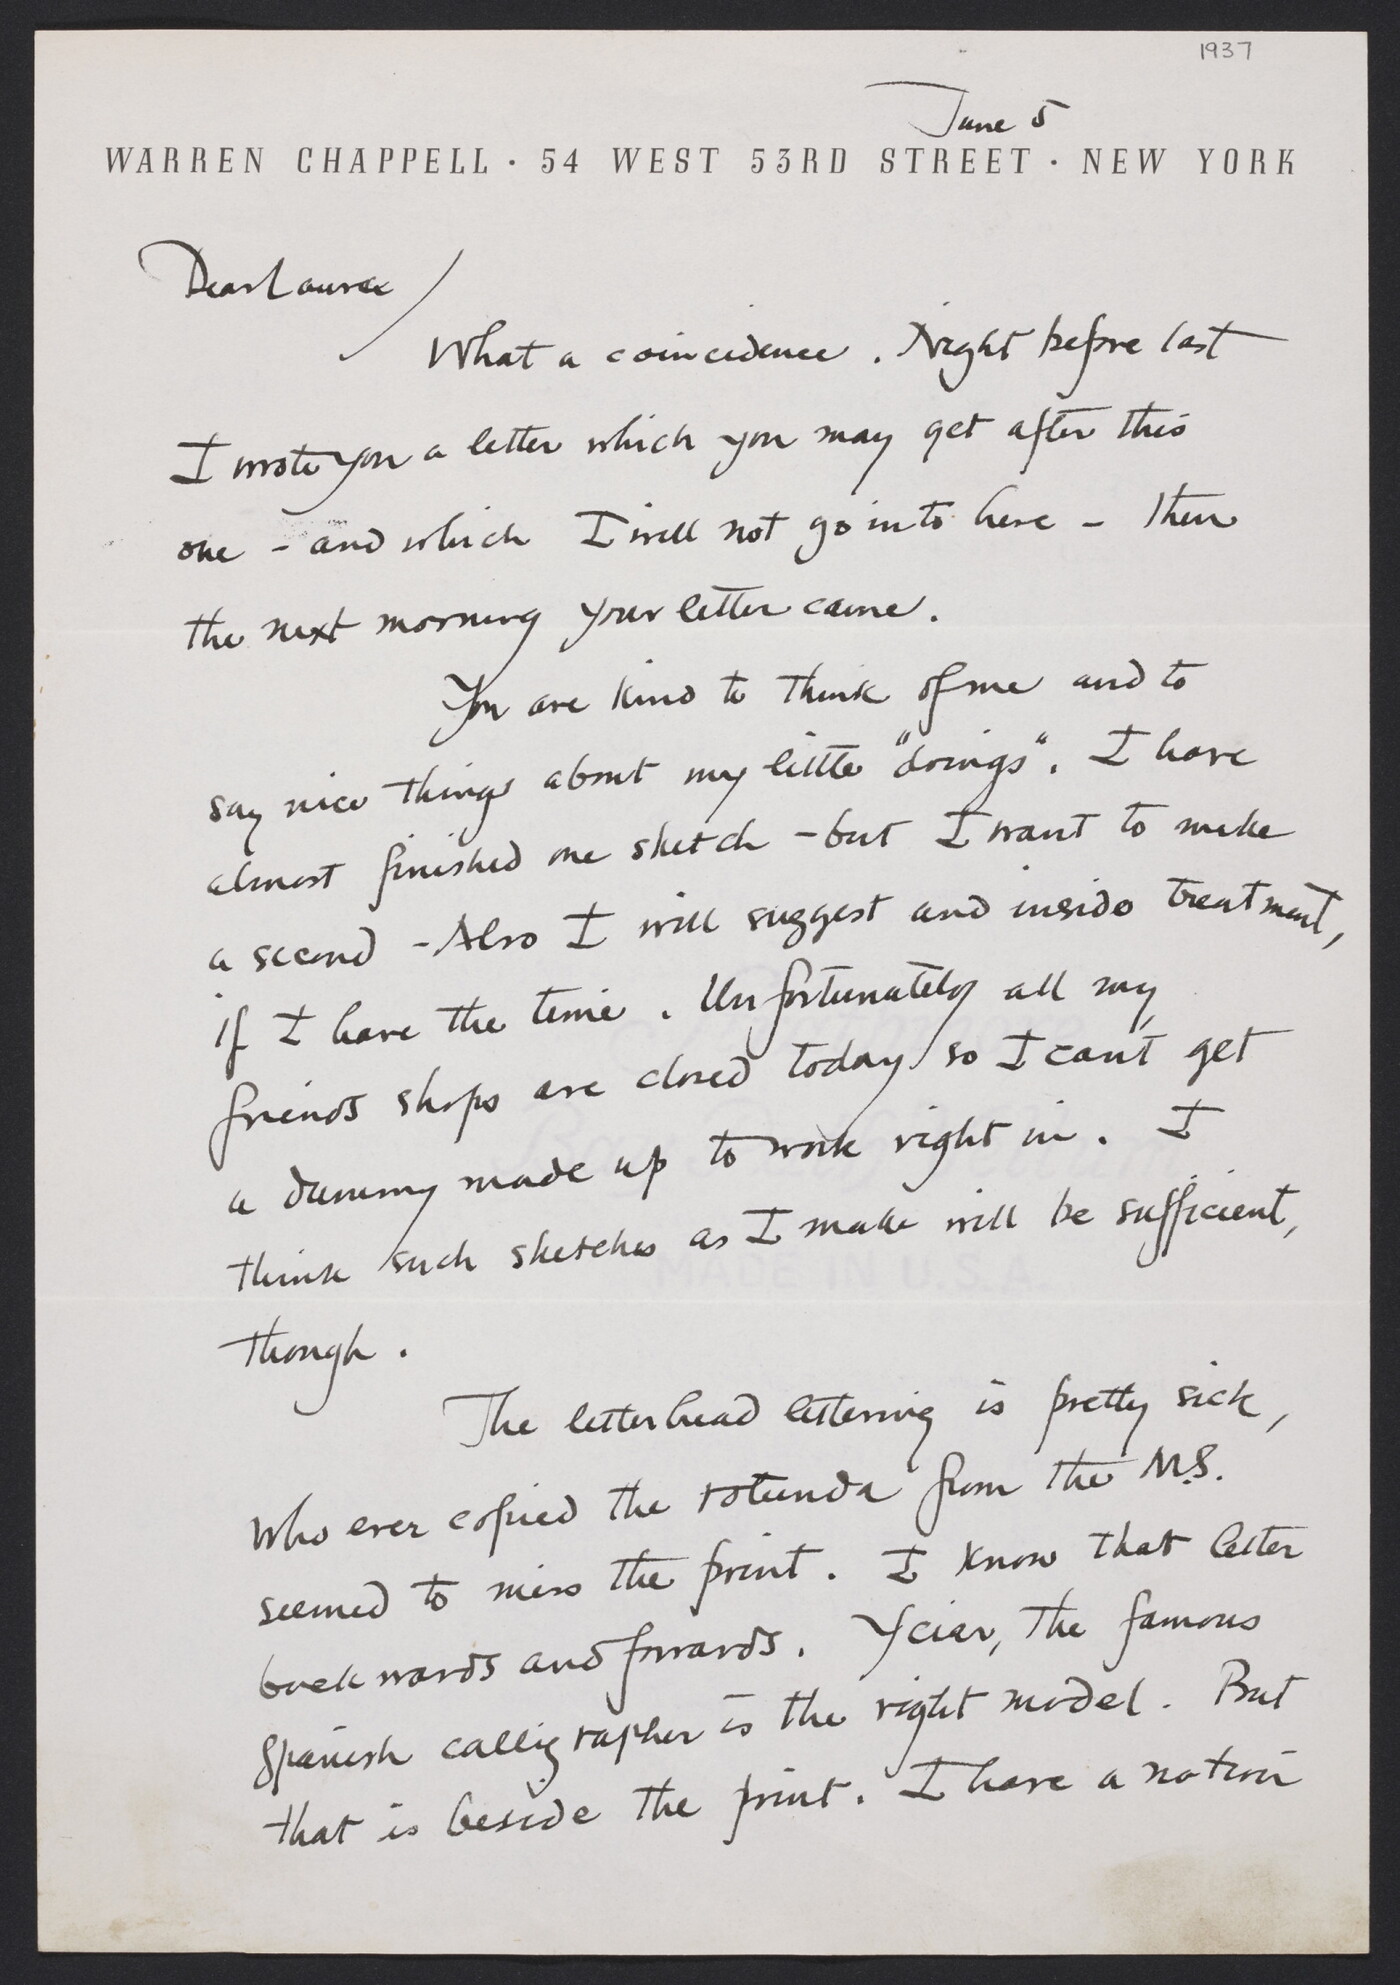 1937
June 5
WARREN CHAPPELL · 54 WEST 53RD STREET · NEW YORK
Dear Laurence
What a coincidence. Night before last
I wrote you a letter which you may get after this
one - and which I will not go into here - Then
the next morning your letter came.
You are kind to think of me and to
say nice things about my little "doings". I have
almost finished one sketch - but I want to make
a second - Also I will suggest and inside treatment,
if I have the time. Unfortunately all my
friends shops are closed today so I cant get
a dummy made up to work right in. I
think such sketches as I make will be sufficient,
though.
The letterhead lettering is pretty sick,
who ever copied the rotunda from the M.S.
seemed to miss the point. I know that letter
backwards and forwards. Yciar, the famous
Spanish calligrapher is the right model. But
that is beside the point. I have a notion
MADE IN U.S.A.